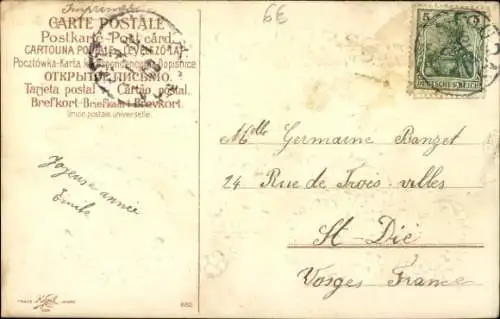 Imprimé
6E
CARTE POSTALE
Postkarte - Post card
CARTOLINA POSTALE - LEVELEZŐ-LAP
Pocztówka - Karta Korespondencyjna - Dopisnice
ОТКРЫТОЕ ПИСЬМО.
Tarjeta postal - Cartão postal.
Brefkort - Briefkaart - Brevkort.
Union postale universelle.
5
DEUTSCHES REICH
Joyeuse année
Emile
Melle Germaine Banzet
24 Rue de Trois-villes
St-Dié
Vosges France